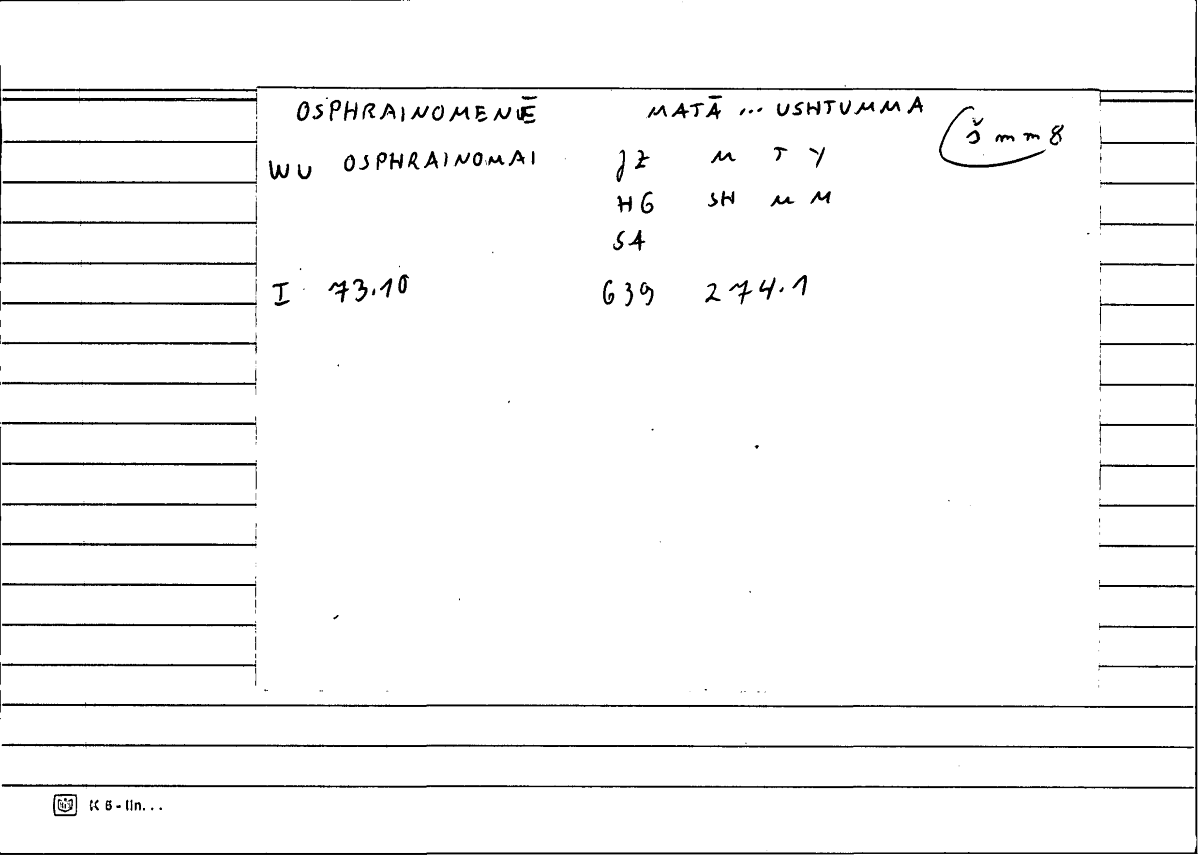 OSPHRAINOMENĒ MATĀ ... USHTUMMA š mm 8
WU OSPHRAINOMAI JZ M T Y
HG SH M M
SA
I 73.10 639 274.1
K 6 - lin...